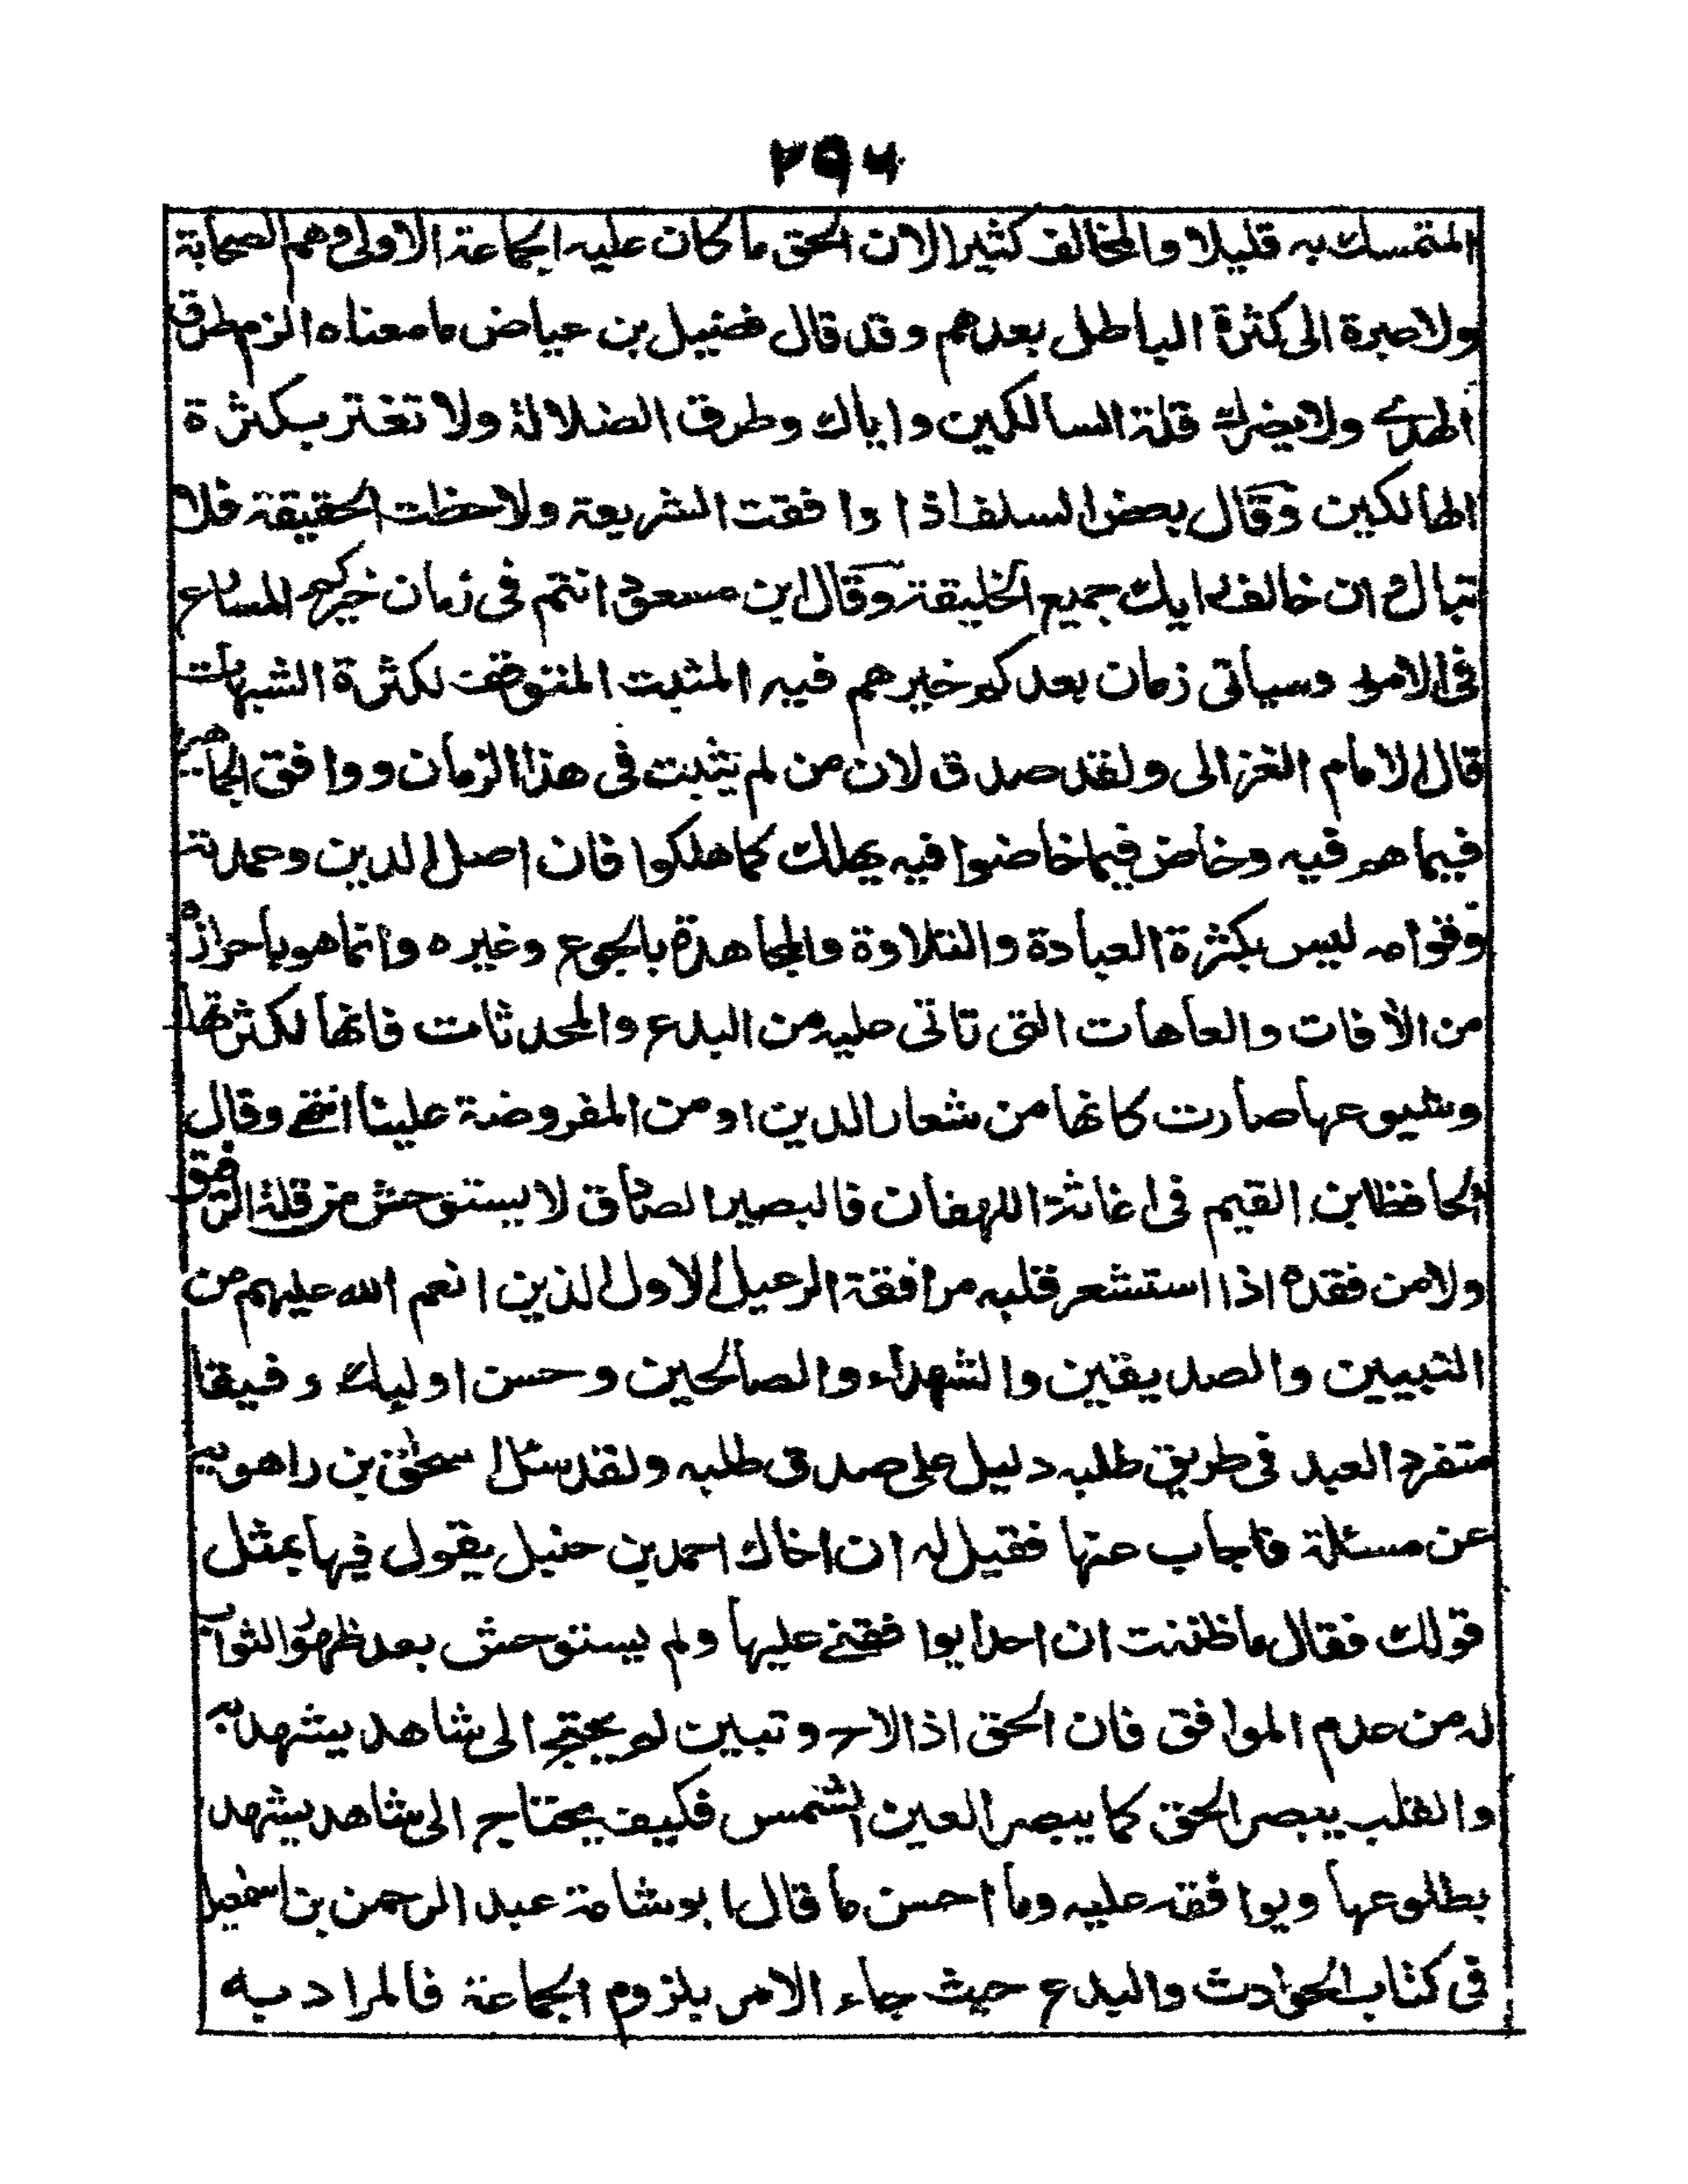 ٢٩٤
المتمسك به قليلا والمخالف كثيرا لان الحق ما كان عليه الجماعة الاولى وهم الصحابة
ولا عبرة الى كثرة الباطل بعدهم وقد قال فضيل بن عياض ما معناه الزم طرق
الهدى ولا يضرك قلة السالكين واياك وطرق الضلالة ولا تغتر بكثرة
الهالكين وقال بعض السلف اذا وافقت الشريعة ولاحظت الحقيقة فلا
تبال وان خالف رايك جميع الخليقة وقال ابن مسعود انتم فى زمان خيركم المسارع
فى الامور وسياتى زمان بعدكم خيرهم فيه المثبت المتوقف لكثرة الشبهات
قال الامام الغزالى ولقد صدق لان من لم يثبت فى هذا الزمان ووافق الجماهير
فيما هم فيه وخاض فيما خاضوا فيه يهلك كما هلكوا فان اصل الدين وعمدته
وقوامه ليس بكثرة العبادة والتلاوة والمجاهدة بالجوع وغيره وانما هو باحرازه
من الأفات والعاهات التى تاتى عليه من البدع والمحدثات فانها لكثرتها
وشيوعها صارت كانها من شعار الدين او من المفروضة علينا انتهى وقال
الحافظ ابن القيم فى اغاثة اللهفان فالبصير الصادق لا يستوحش من قلة الرفيق
ولا من فقده اذا استشعر قلبه مرافقة الرعيل الاول الذين انعم الله عليهم من
النبيين والصديقين والشهداء والصالحين وحسن اوليك رفيقا
متفرد العبد فى طريق طلبه دليل على صدق طلبه ولقد سئل اسحٰق بن راهويه
عن مسئلة فاجاب عنها فقيل له ان اخاك احمد بن حنبل يقول فيها بمثل
قولك فقال ما ظننت ان احدا يوافقنى عليها ولم يستوحش بعد ظهور الثواب
له من عدم الموافق فان الحق اذا لاح وتبين لم يحتج الى شاهد يشهد به
والقلب يبصر الحق كما يبصر العين الشمس فكيف يحتاج الى شاهد يشهد
بطلوعها ويوافقه عليه وما احسن ما قال ابو شامة عبد الرحمن بن اسمٰعيل
فى كتاب الحوادث والبدع حيث جاء الامر بلزوم الجماعة فالمراد به